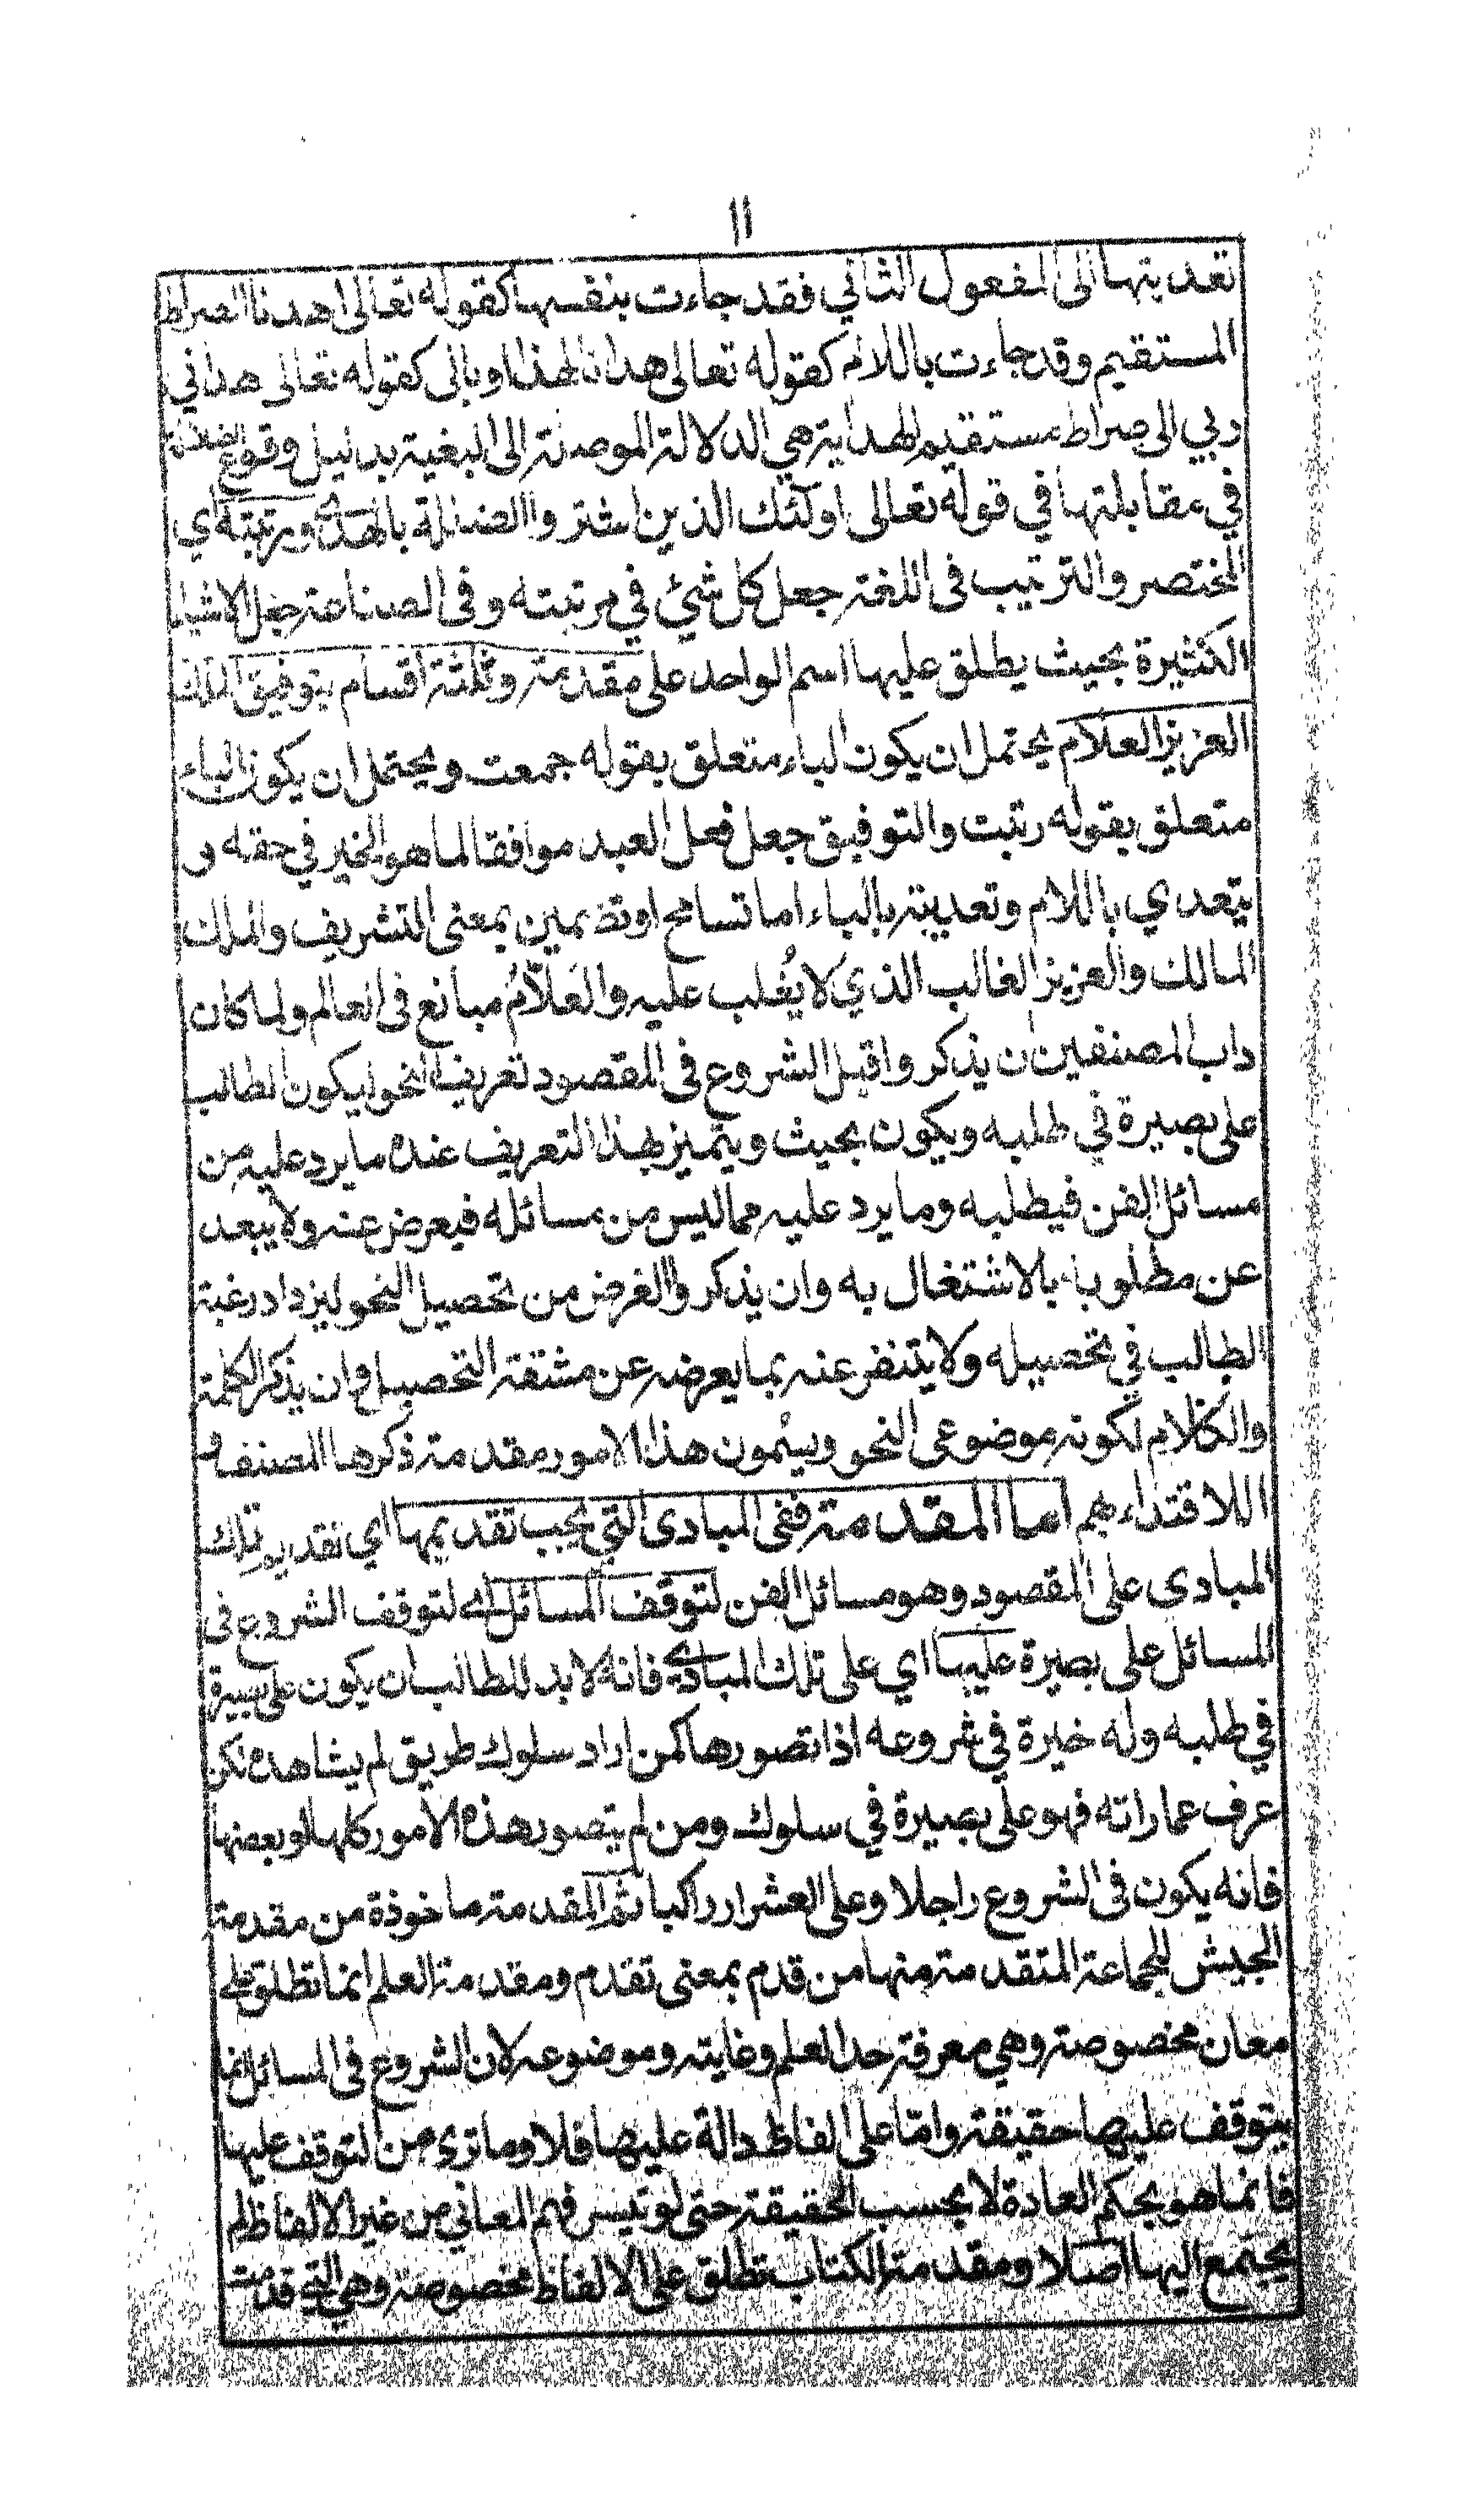 ١١
تعديتها الى المفعول الثاني فقد جاءت بنفسها كقوله تعالى اهدنا الصراط
المستقيم وقد جاءت باللام كقوله تعالى هدانا لهذا او بالى كقوله تعالى هداني
ربي الى صراط مستقيم الهداية هي الدلالة الموصلة الى البغية بدليل وقوع الضلالة
في مقابلتها في قوله تعالى اولئك الذين اشتروا الضلالة بالهدى ورتبته اي
المختصر والترتيب فى اللغة جعل كل شئ في مرتبته وفى الصناعة جعل الاشياء
الكثيرة بحيث يطلق عليها اسم الواحد على مقدمة وثلثة اقسام بتوفيق الملك
العزيز العلام يحتمل ان يكون الباء متعلق بقوله جمعت ويحتمل ان يكون الباء
متعلق بقوله رتبت والتوفيق جعل فعل العبد موافقا لما هو الخير في حقه و
يتعدي باللام وتعديته بالباء اما تسامح او تضمين بمعنى التشريف والملك
المالك والعزيز الغالب الذي لا يُغلب عليه والعَلّامُ مبالغ فى العالم ولما كان
داب المصنفين ان يذكروا قبل الشروع فى المقصود تعريف النحو ليكون الطالب
على بصيرة في طلبه ويكون بحيث ويتميز بهذا التعريف عنده ما يرد عليه من
مسائل الفن فيطلبه وما يرد عليه مما ليس من مسائله فيعرض عنه ولا يبعد
عن مطلوبه بالاشتغال به وان يذكروا الغرض من تحصيل النحو ليزداد رغبة
الطالب في تحصيله ولا يتنفر عنه بما يعرضه عن مشقة التحصيل وان يذكر الكلمة
والكلام لكونه موضوعى النحو ويسمون هذا الامور مقدمة ذكرها المصنف و
اللاقتداء بهم اما المقدمة ففى المبادى التي يجب تقديمها اي تقديم تلك
المبادى على المقصود وهو مسائل الفن لتوقف المسائل اى لتوقف الشروع فى
المسائل على بصيرة عليها اي على تلك المبادى فانه لا بد للطالب ان يكون على بصيرة
في طلبه وله خيرة في شروعه اذا تصورها كمن اراد سلوك طريق لم يشاهده لكن
عرف عماراته فهو على بصيرة في سلوك ومن لم يتصور هذه الامور كلها او بعضها
فانه يكون فى الشروع راجلا وعلى العشرار راكبا ثم المقدمة ما خوذة من مقدمة
الجيش للجماعة المتقدمة منها من قدم بمعنى تقدم ومقدمة العلم انما تطلق على
معان مخصوصة وهي معرفة حد العلم وغايته وموضوعه لان الشروع فى المسائل انما
يتوقف عليها حقيقة وامّا على الفاظ دالة عليها فلا وما ترى من التوقف عليها
فانما هو بحكم العادة لا بحسب الحقيقة حتى لو تيسر فهم المعاني من غير الالفاظ لم
يحتمع اليها اصلا ومقدمة الكتاب تطلق على الالفاظ مخصوصة وهي التي قدمت